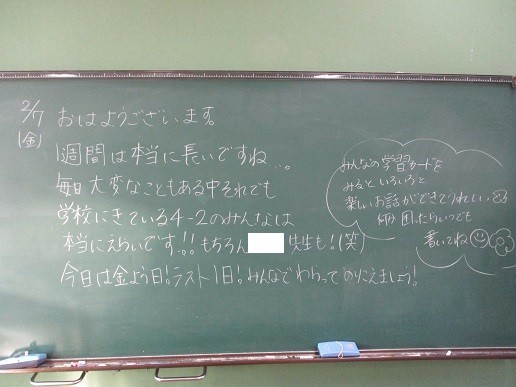 2/7
(金)
おはようございます。
1週間は本当に長いですね…。
毎日大変なこともある中それでも
学校にきている4-2のみんなは
本当にえらいです!!もちろん 先生も!(笑)
今日は金よう日!ラスト1日!みんなでわらってのりこえましょう!
みんなの学習カードを
みるといろいろと
楽しいお話ができてうれしい
何か困ったらいつでも
書いてね